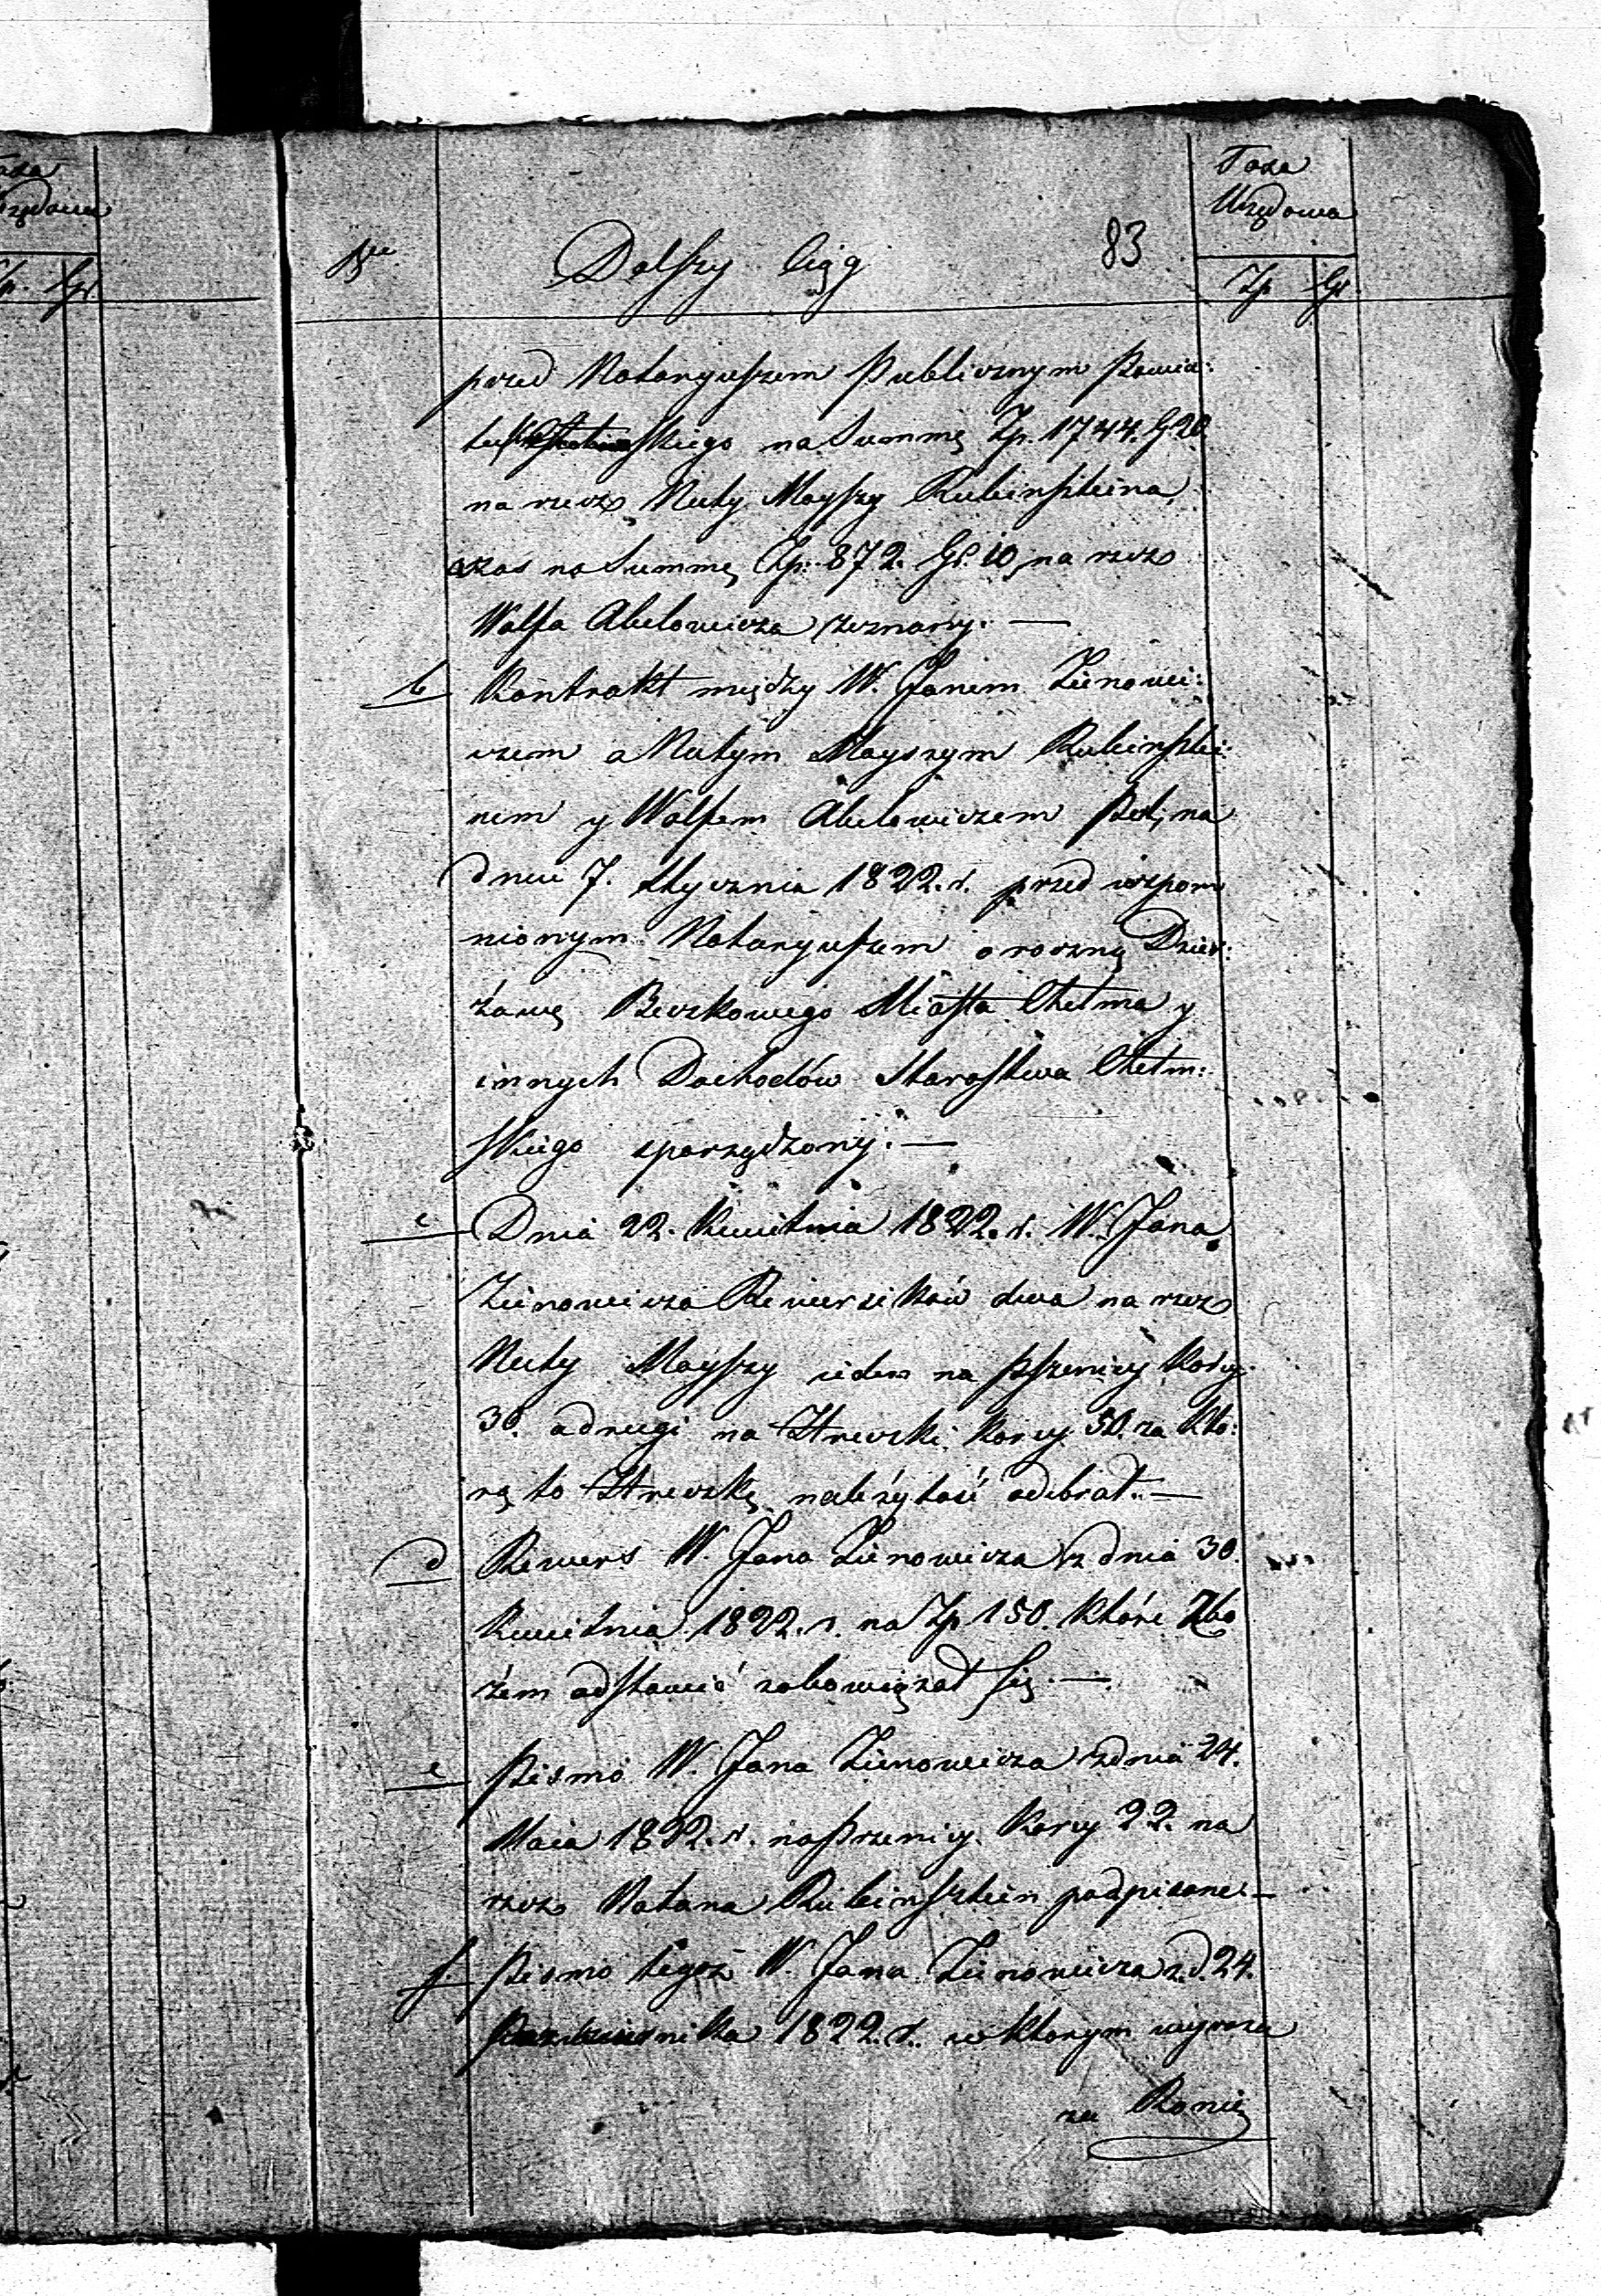 Taxa
Urzędowa
Nro Dalszy Ciąg 83
Zp Gr
przed Notaryuszem Publicznym Powia:
skiego na Summę Zp. 1744. G 20.
na rzecz Nuty Moyszy Rubinszteina,
a zas na Summę Zp. 872. Gr. 10, na rzecz
Wolfa Abelowicza zeznany. —
b Kontrakt między W. Janem Zienowi:
czem a Nutym Moyszym Rubinsztei:
nem y Wolfem Abelowiczem Pod, na
dniu 7. Stycznia 1822. r. przed wspom
nionym Notaryuszem o roczną Dzier:
żawę Beczkowego Miasta Chełma y
innych Dochodów Starostwa Chełm:
skiego sporządzony. —
c Dnia 22. Kwietnia 1822. r. W. Jana
Zienowicza Rewersików dwa na rzecz
Nuty Moyszy ieden na Pszenicy Korcy
30. a drugi na Hreczki Korcy 50. za Któ:
rą to Hreczkę należytość odebrał. —
d Rewers W. Jana Zienowicza z dnia 30.
Kwietnia 1822. r. na Zp 150. Które Zbo
żem odstawić zobowiązał się. —
e Pismo W. Jana Zienowicza z dnia 24.
Maia 1822. r. na Przenicy Korcy 22. na
rzecz Natana Rubinsztein podpisane —
f Pismo tegoż W. Jana Zienowicza z. d. 24.
Pazdziernika 1822. r. w ktorym wyraza
za Konie